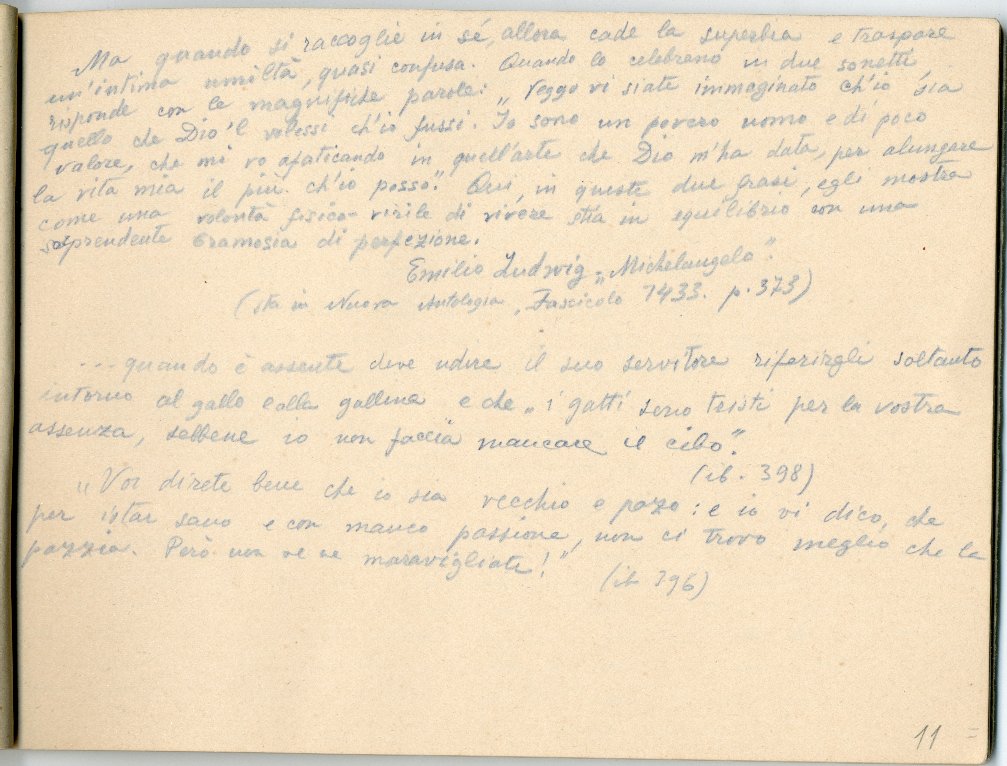 Ma quando si raccoglie in sé, allora cade la superbia e traspare
un'intima umiltà, quasi confusa. Quando lo celebrano in due sonetti,
risponde con le magnifiche parole: „Veggo vi siate immaginato ch'io sia
quello che Dio 'l volessi ch'io fussi. Io sono un povero uomo e di poco
valore, che mi vo afaticando in quell'arte che Dio m'ha data, per alungare
la vita mia il più ch'io posso". Qui, in queste due frasi, egli mostra
come una volontà fisico-virile di vivere stia in equilibrio con una
sorprendente bramosia di perfezione.
Emilio Ludwig „Michelangelo".
(sta in Nuova Antologia, Fascicolo 1433. p. 373)
... quando è assente deve udire il suo servitore riferirgli soltanto
intorno al gallo e alla gallina e che „i gatti sono tristi per la vostra
assenza, sebbene io non faccia mancare il cibo".
(ib. 398)
„Voi direte bene che io sia vecchio e pazo: e io vi dico, che
per istar sano e con manco passione, non ci trovo meglio che la
pazzia. Però non ve ne maravigliate!"
(ib 396)
11